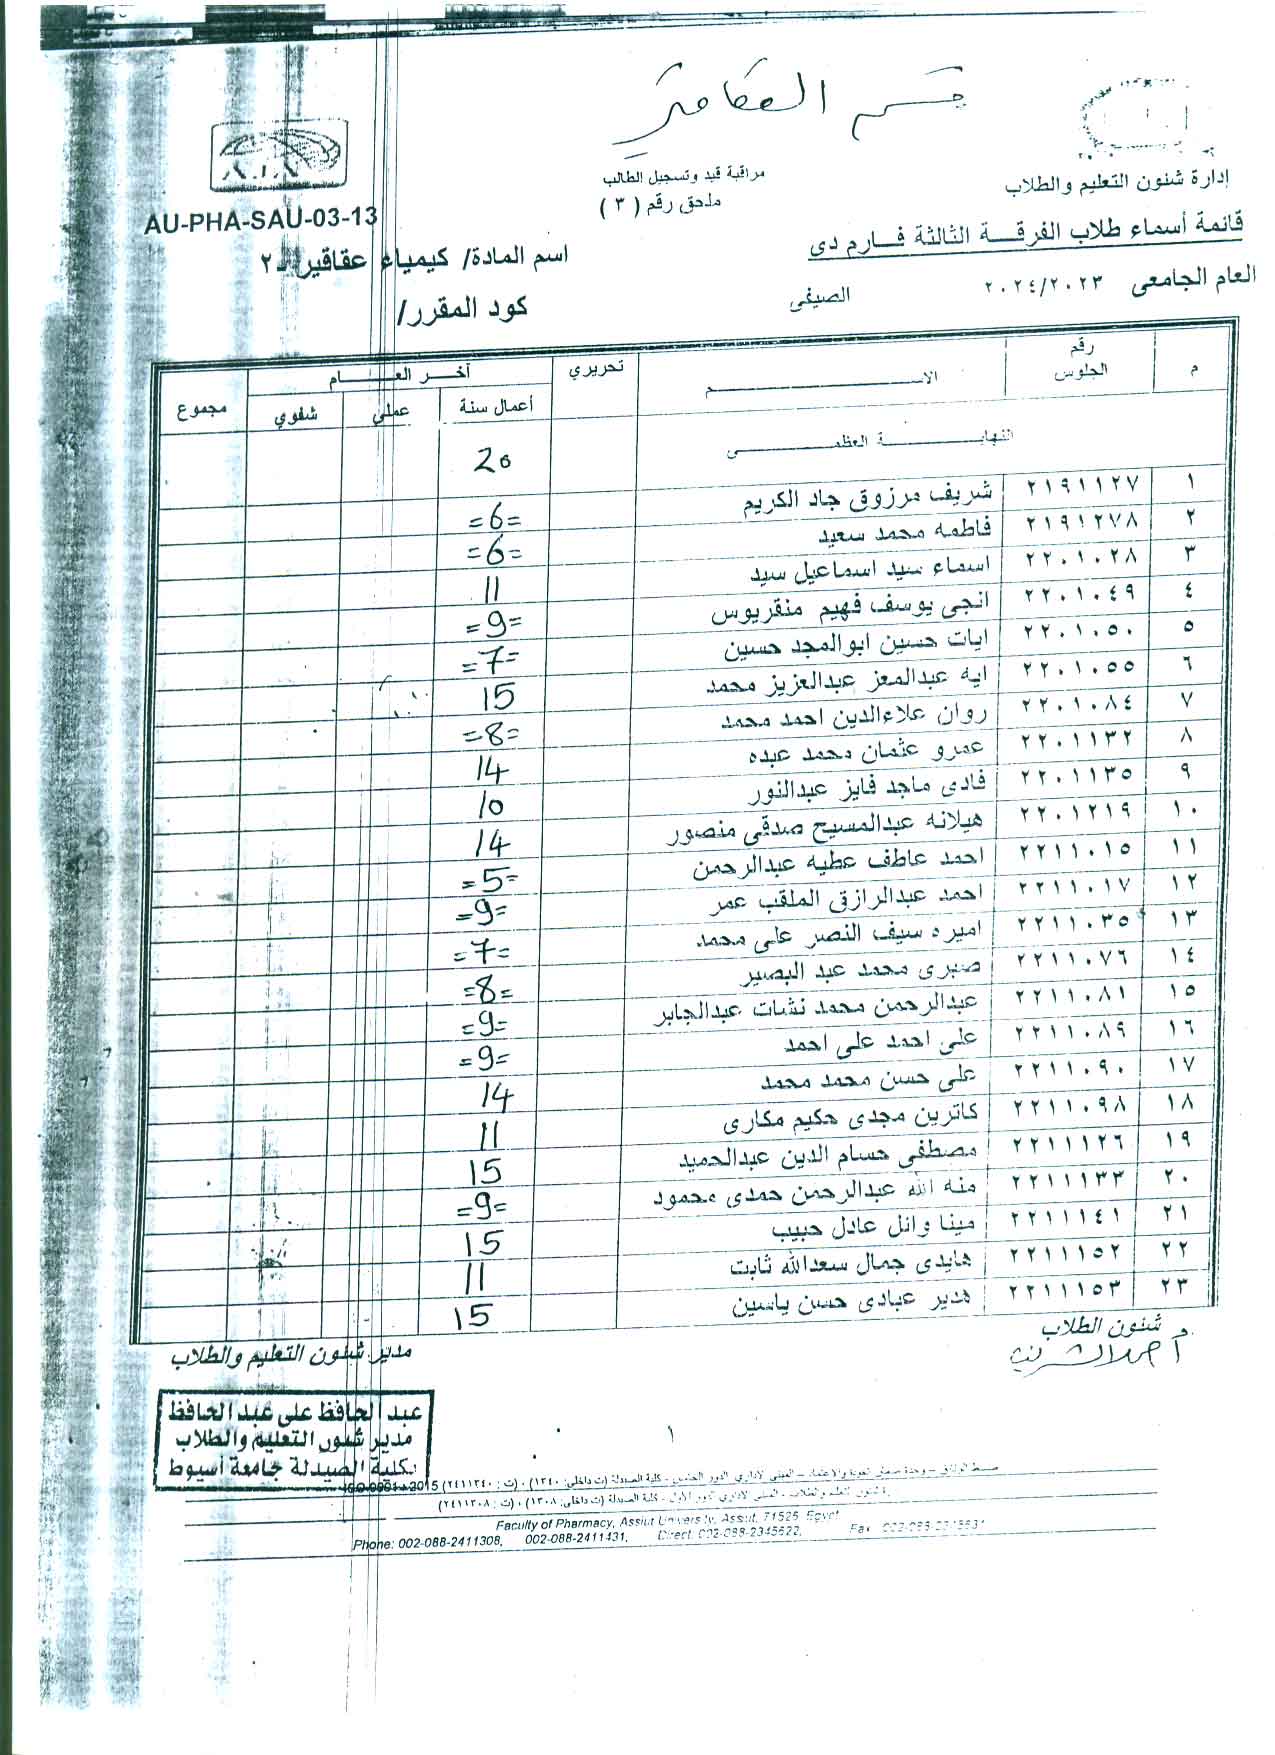 قسم العقاقير
إدارة شئون التعليم والطلاب
مراقبة قيد وتسجيل الطالب
ملحق رقم ( ٣ )
AU-PHA-SAU-03-13
قائمة أسماء طلاب الفرقة الثالثة فارم دى
اسم المادة/ كيمياء عقاقير -٢
العام الجامعى ٢٠٢٤/٢٠٢٣ الصيفى
كود المقرر/
م رقم الجلوس الاسم تحريري آخر العام مجموع
أعمال سنة عملي شفوي
النهاية العظمى 20
١ ٢١٩١١٢٧ شريف مرزوق جاد الكريم =6=
٢ ٢١٩١٢٧٨ فاطمه محمد سعيد =6=
٣ ٢٢٠١٠٢٨ اسماء سيد اسماعيل سيد 11
٤ ٢٢٠١٠٤٩ انجى يوسف فهيم منقريوس =9=
٥ ٢٢٠١٠٥٠ ايات حسين ابوالمجد حسين =7=
٦ ٢٢٠١٠٥٥ ايه عبدالمعز عبدالعزيز محمد 15
٧ ٢٢٠١٠٨٤ روان علاءالدين احمد محمد =8=
٨ ٢٢٠١١٣٢ عمرو عثمان محمد عبده 14
٩ ٢٢٠١١٣٥ فادى ماجد فايز عبدالنور 10
١٠ ٢٢٠١٢١٩ هيلانه عبدالمسيح صدقى منصور 14
١١ ٢٢١١٠١٥ احمد عاطف عطيه عبدالرحمن =5=
١٢ ٢٢١١٠١٧ احمد عبدالرازق الملقب عمر =9=
١٣ ٢٢١١٠٣٥ اميره سيف النصر على محمد =7=
١٤ ٢٢١١٠٧٦ صبرى محمد عبد البصير =8=
١٥ ٢٢١١٠٨١ عبدالرحمن محمد نشات عبدالجابر =9=
١٦ ٢٢١١٠٨٩ على احمد على احمد =9=
١٧ ٢٢١١٠٩٠ على حسن محمد محمد 14
١٨ ٢٢١١٠٩٨ كاترين مجدى حكيم مكارى 11
١٩ ٢٢١١١٢٦ مصطفى حسام الدين عبدالحميد 15
٢٠ ٢٢١١١٣٣ منه الله عبدالرحمن حمدى محمود =9=
٢١ ٢٢١١١٤١ مينا وائل عادل حبيب 15
٢٢ ٢٢١١١٥٢ هايدى جمال سعدالله ثابت 11
٢٣ ٢٢١١١٥٣ هدير عبادى حسن ياسين 15
شئون الطلاب
مدير شئون التعليم والطلاب
عبد الحافظ على عبد الحافظ
مدير شئون التعليم والطلاب
بكلية الصيدلة جامعة أسيوط
١
Faculty of Pharmacy, Assiut University, Assiut, 71526, Egypt
Phone: 002-088-2411308, 002-088-2411431, Direct. 002-088-2345622, Fax